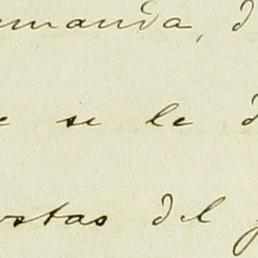 manda, d
e se le d
ostas del